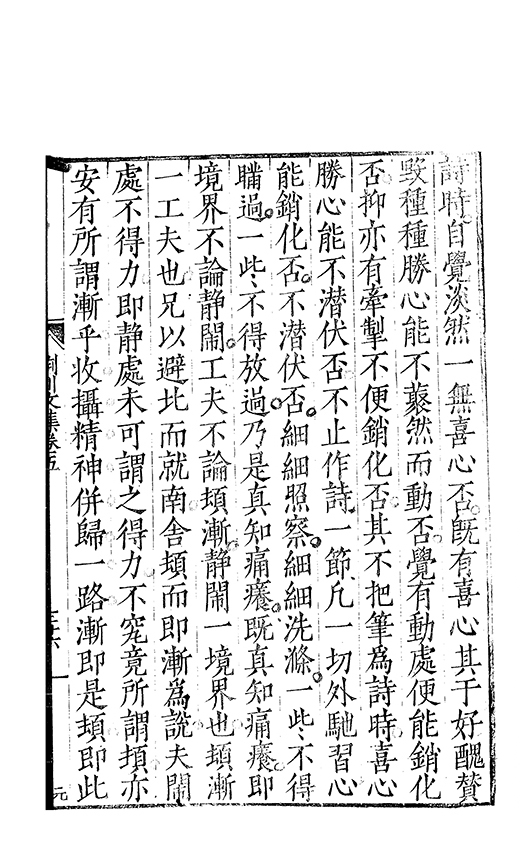 詩時自覺淡然一無喜心否旣有喜心其于好醜贊
毀種種勝心能不藂然而動否覺有動處便能銷化
否抑亦有牽掣不便銷化否其不把筆爲詩時喜心
勝心能不潜伏否不止作詩一節凢一切外馳習心
能銷化否不潜伏否細細照察細細洗滌一些不得
瞞過一些不得放過乃是真知痛癢旣真知痛癢即
境界不論静閙工夫不論頓漸静閙一境界也頓漸
一工夫也兄以避北而就南舎頓而即漸爲說夫閙
處不得力即静處未可謂之得力不究竟所謂頓亦
安有所謂漸乎收攝精神併歸一路漸即是頓即此
荆川文集卷五
元